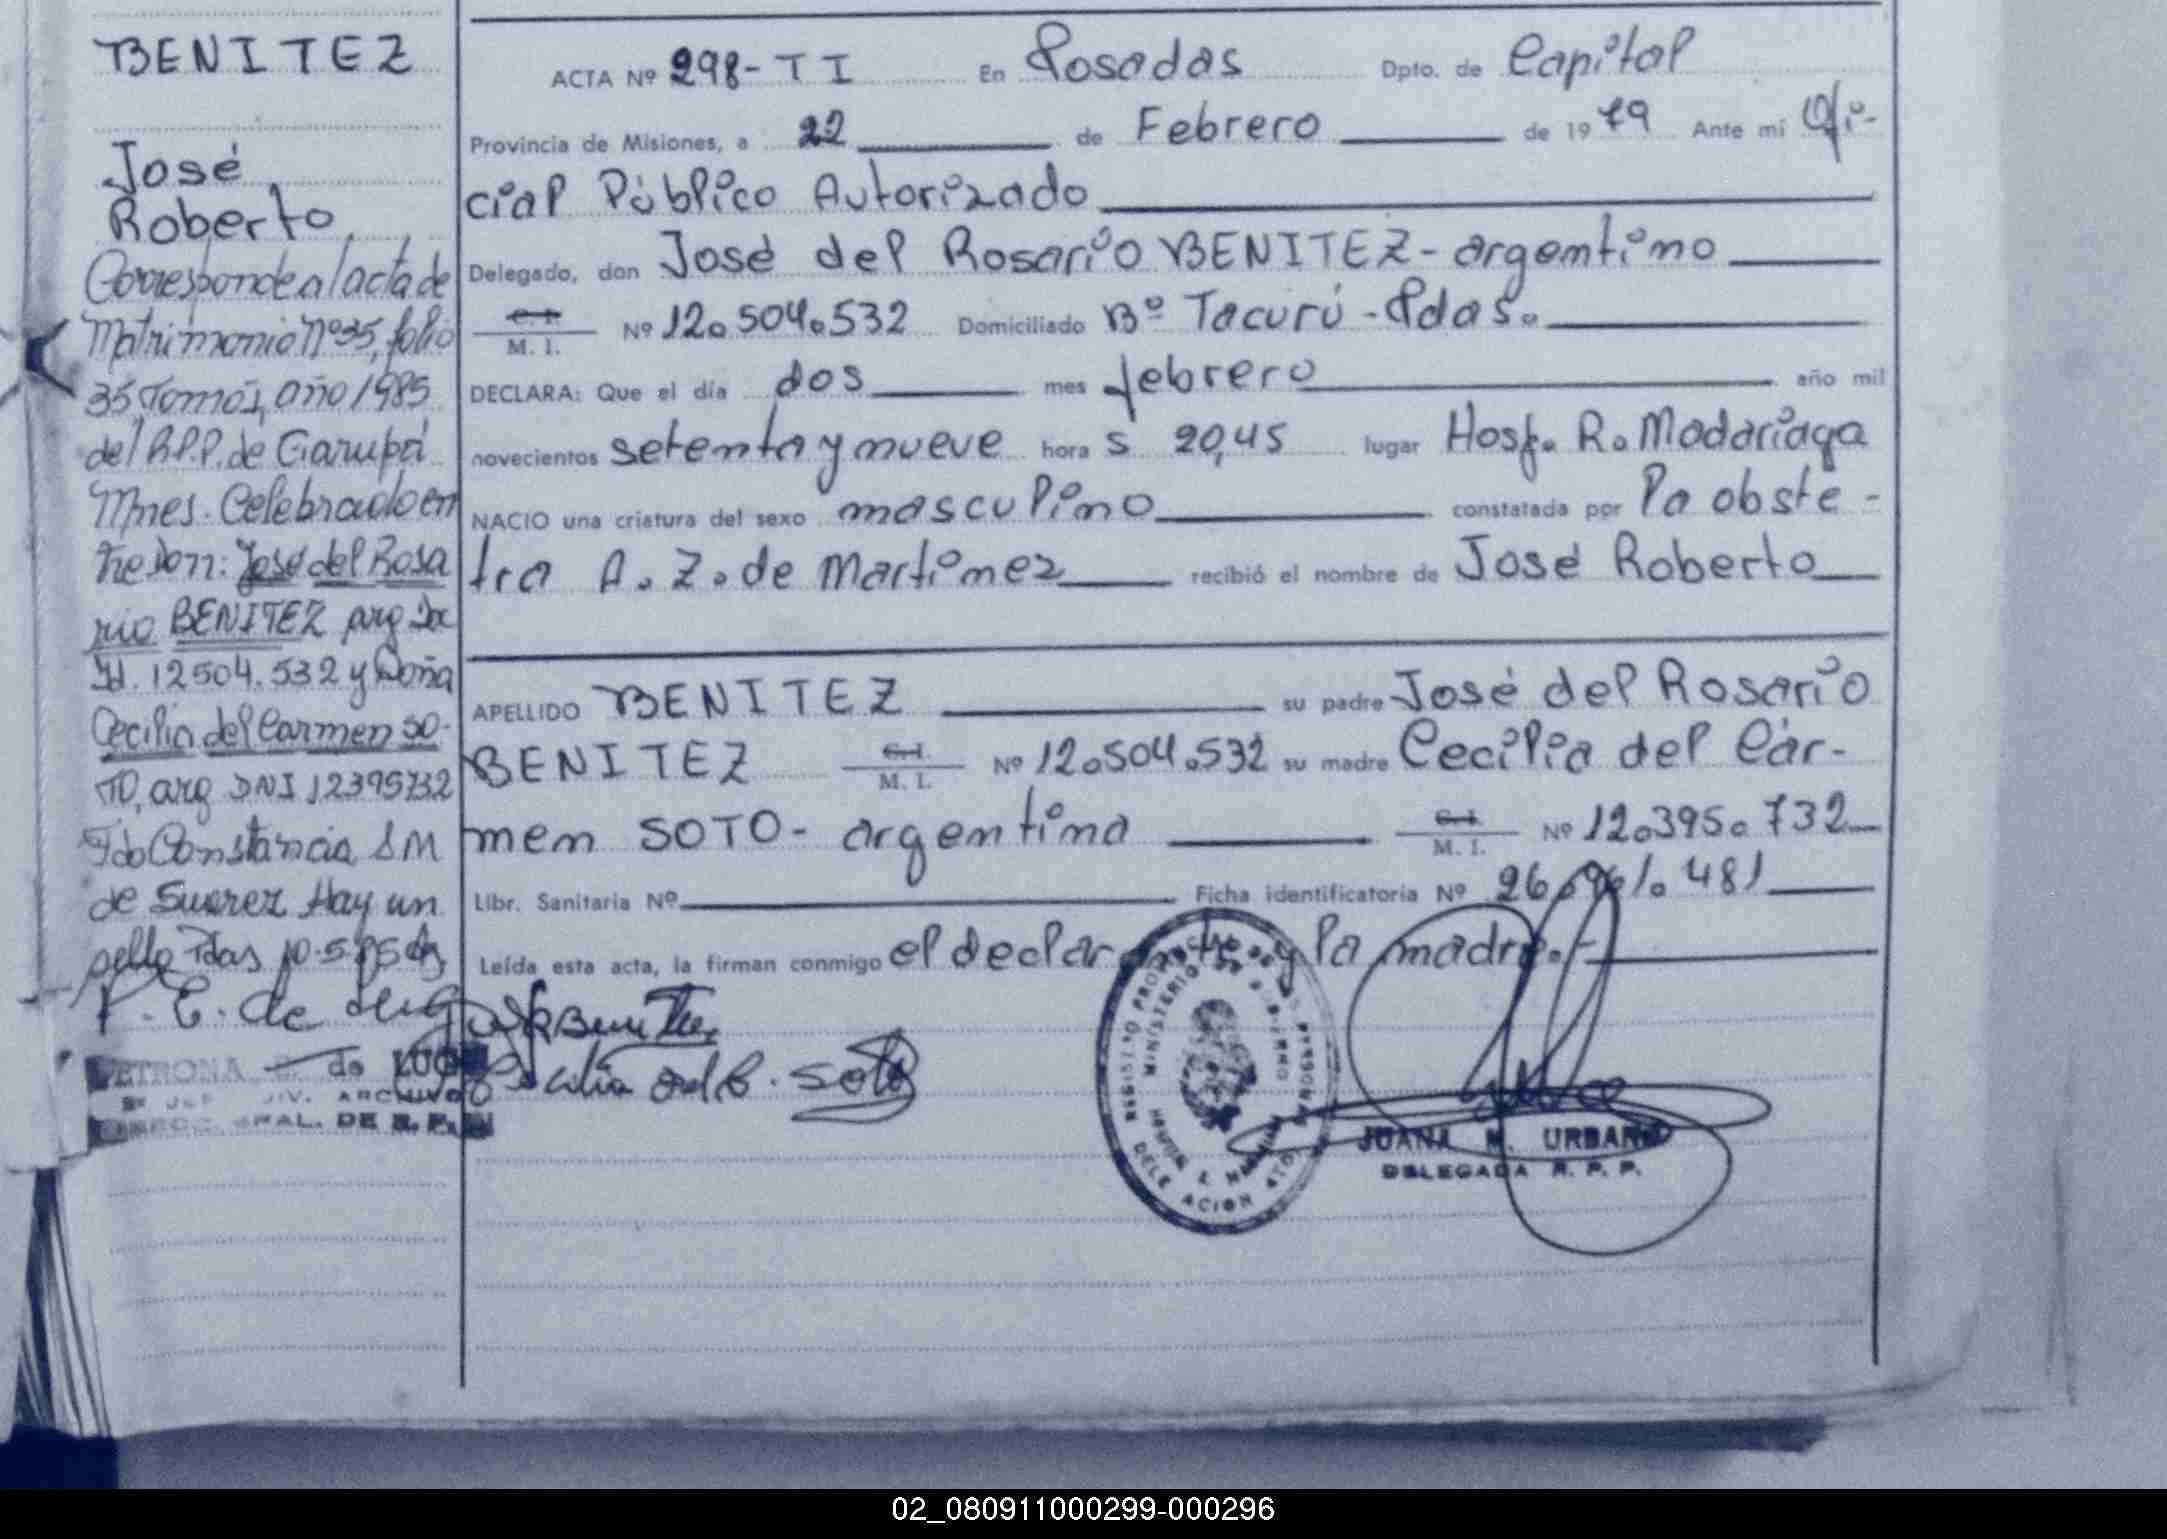 BENITEZ
José
Roberto
Corresponde al acta de
Matrimonio Nº 35, folio
35, Tomo I, año 1985
del R.P.P. de Garupá
Mnes. Celebrado en
tre Don: José del Rosa
rio BENITEZ arg Doc
Id. 12504.532 y Doña
Cecilia del Carmen SO-
TO, arg DNI 12395732
Fdo Constancia S M
de Suarez Hay un
sello Pdas
P. E. de Lugo
PETRONA E. de LUGO
DIV. ARCHIVO
GRAL. DE R. P.
ACTA Nº 298-TI En Posadas Dpto. de Capital
Provincia de Misiones, a 22 de Febrero de 1979 Ante mí Ofi-
cial Público Autorizado
Delegado, don José del Rosario BENITEZ - argentino
C. I. M. I. Nº 12.504.532 Domiciliado Bº Tacurú - Pdas.
DECLARA: Que el día dos mes febrero año mil
novecientos setenta y nueve hora s 20,45 lugar Hosp. R. Madariaga
NACIO una criatura del sexo masculino constatada por la obste-
tra A. Z. de Martinez recibió el nombre de José Roberto
APELLIDO BENITEZ su padre José del Rosario
BENITEZ C. I. M. I. Nº 12.504.532 su madre Cecilia del Car-
men SOTO - argentina C. I. M. I. Nº 12.395.732
Libr. Sanitaria Nº Ficha identificatoria Nº 26.961.481
Leída esta acta, la firman conmigo el declarante y la madre.-
Benitez
Cecilia del C. Soto
REGISTRO PROVINCIAL DE LAS PERSONAS
MINISTERIO DE GOBIERNO
DELEGACION
JUANA M. URBANO
DELEGADA R. P. P.
02_080911000299-000296